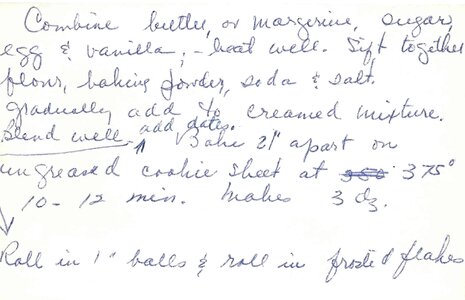 Combine butter, or margerine, sugar,
egg & vanilla, - beat well. Sift together
flour, baking powder, soda & salt.
Gradually add to creamed mixture.
Blend well. add dates. Bake 2" apart on
ungreased cookie sheet at 350° 375°
10 - 12 min. Makes 3 dz.
Roll in 1" balls & roll in frosted flakes